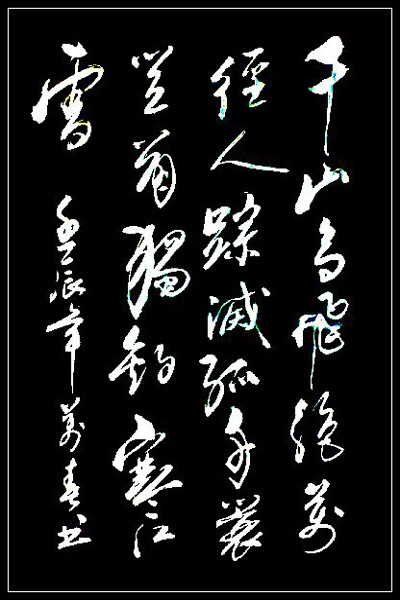 千山鳥飛絕萬
徑人踪滅孤舟蓑
笠翁獨釣寒江
雪 壬辰年萬春书